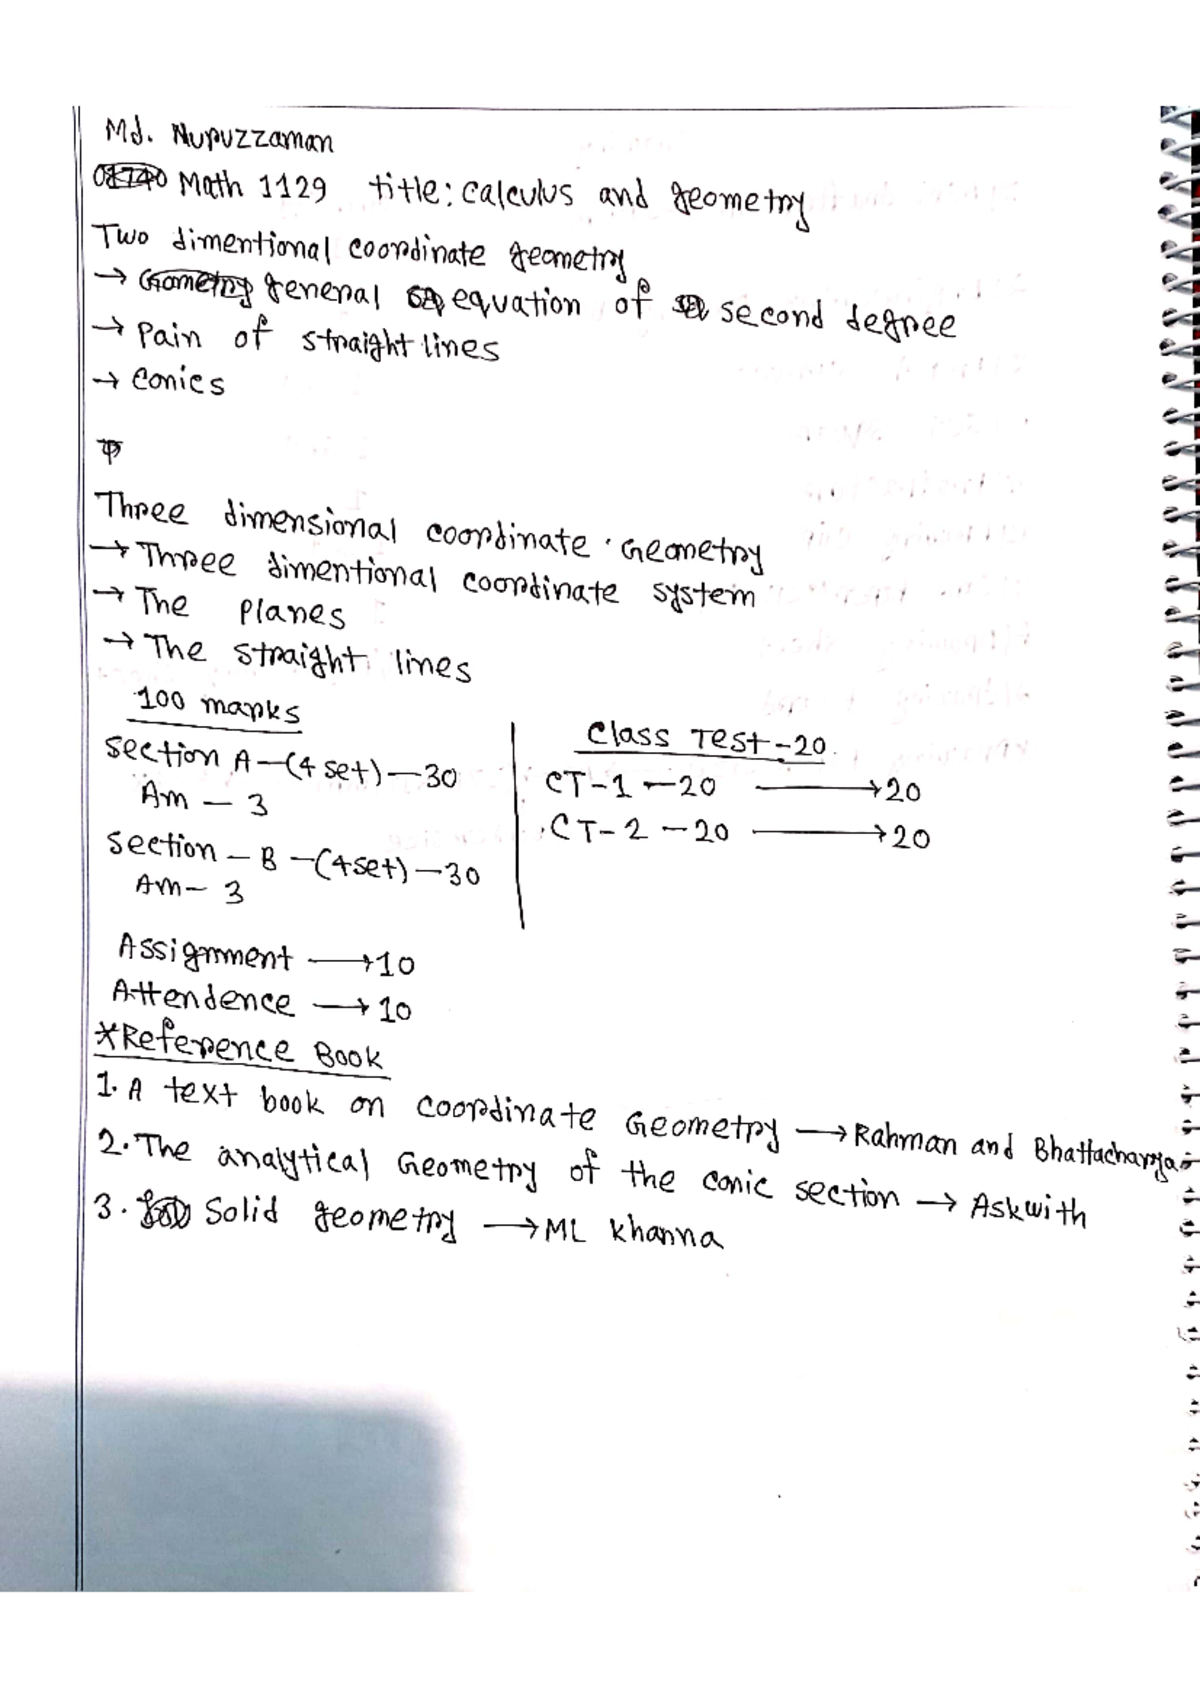 Md. Nuruzzaman
Math 1129 title: calculus and geometry
Two dimentional coordinate geometry
→ general equation of second degree
→ Pair of straight lines
→ Conics
Three dimensional coordinate · Geometry
→ Three dimentional coordinate system
→ The planes
→ The straight lines
100 marks
section A—(4 set)—30
Am — 3
section — B —(4set)—30
Am— 3
Class Test-20
CT-1 —20 → 20
CT-2 —20 → 20
Assignment → 10
Attendence → 10
*Reference Book
1. A text book on coordinate Geometry → Rahman and Bhattacharya
2. The analytical Geometry of the conic section → Askwith
3. Solid geometry → ML khanna